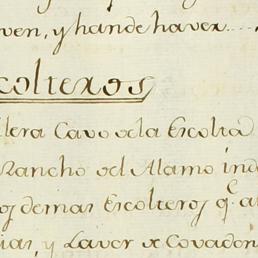 ven, y han de haver....
scolteros
lera Cavo de la Escolta
Rancho del Alamo ind
os demas Escolteros q.e a
ias, y Laver de Covadon